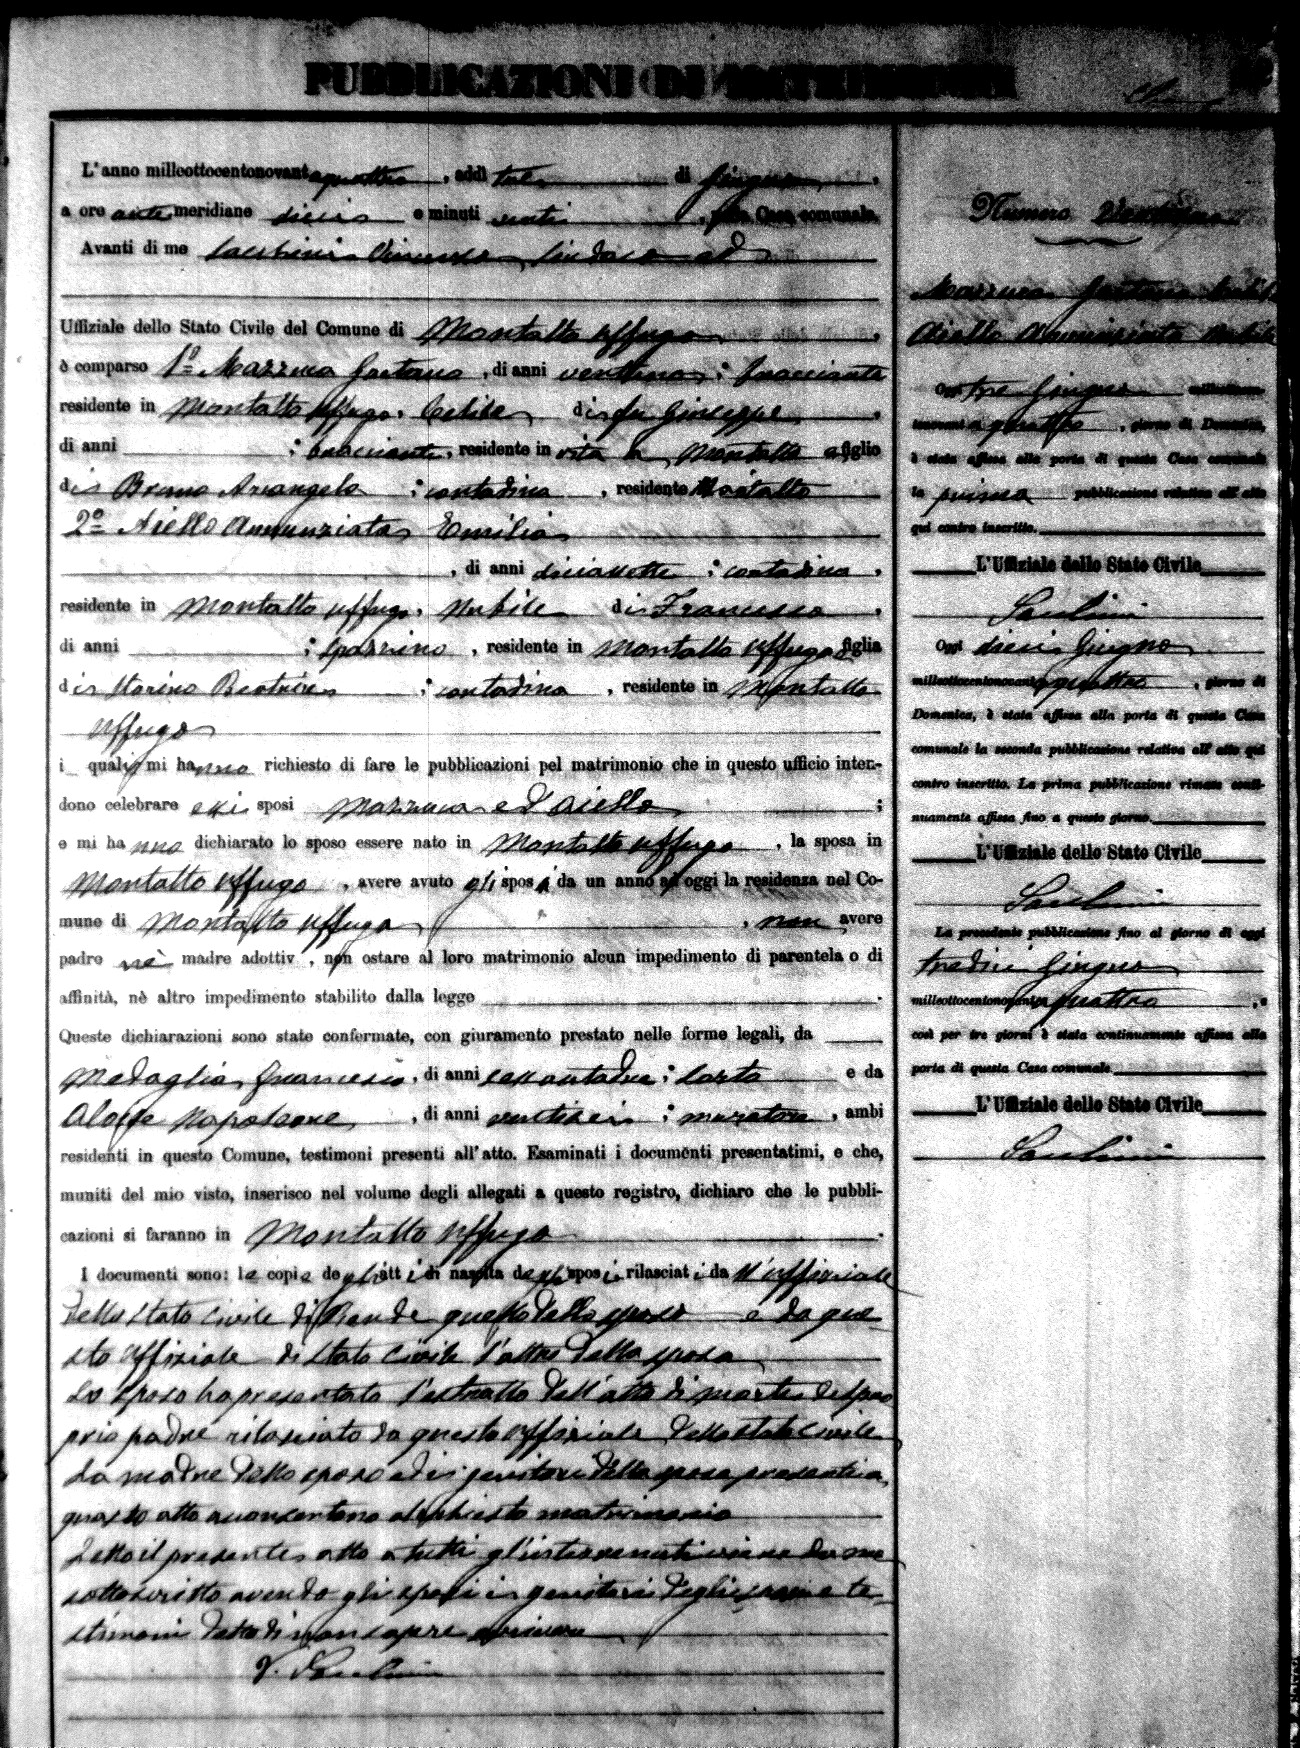 PUBBLICAZIONI DI MATRIMONIO
L'anno milleottocentonovantaquattro, addì tre di Giugno,
a ore antemeridiane dieci e minuti venti, nella Casa comunale.
Avanti di me Vincenzo Sindaco ed
Uffiziale dello Stato Civile del Comune di Montalto Uffugo,
è comparso 1º Mazzuca Gaetano, di anni ventuno; bracciante
residente in Montalto Uffugo, Celibe di fu Giuseppe,
di anni ; bracciante, residente in vita in Montalto figlio
di Bruno Arcangela; contadina, residente Montalto
2º Aiello Annunziata Emilia
, di anni diciassette; contadina,
residente in Montalto Uffugo, Nubile di Francesco,
di anni ; spazzino, residente in Montalto Uffugo figlia
di Storino Beatrice; contadina, residente in Montalto
Uffugo
i quali mi hanno richiesto di fare le pubblicazioni pel matrimonio che in questo ufficio inten-
dono celebrare essi sposi Mazzuca e d'Aiello;
e mi hanno dichiarato lo sposo essere nato in Montalto Uffugo, la sposa in
Montalto Uffugo, avere avuto gli sposi da un anno ad oggi la residenza nel Co-
mune di Montalto Uffugo, non avere
padre nè madre adottiv , non ostare al loro matrimonio alcun impedimento di parentela o di
affinità, nè altro impedimento stabilito dalla legge .
Queste dichiarazioni sono state confermate, con giuramento prestato nelle forme legali, da
Medaglia Francesco, di anni sessantadue; sarto e da
Aloise Napoleone, di anni ventisei; muratore, ambi
residenti in questo Comune, testimoni presenti all'atto. Esaminati i documenti presentatimi, e che,
muniti del mio visto, inserisco nel volume degli allegati a questo registro, dichiaro che le pubbli-
cazioni si faranno in Montalto Uffugo.
I documenti sono: le copie degli atti di nascita degli sposi rilasciati da l'uffiziale
dello Stato Civile di Rende quello dello sposo e da que-
sto Uffiziale di Stato Civile l'altro della sposa
Lo sposo ha presentato l'estratto dell'atto di morte del pro-
prio padre rilasciato da questo Uffiziale dello Stato Civile
La madre dello sposo ed i genitori della sposa presenti a
questo atto acconsentono al chiesto matrimonio
Letto il presente atto a tutti gl'intervenuti viene da me
sottoscritto avendo gli sposi i genitori degli sposi e te-
stimoni detto di non sapere scrivere
Numero
Mazzuca Gaetano Celibe
Aiello Annunziata Nubile
Oggi tre Giugno milleottocen-
tonovantaquattro, giorno di Domenica,
è stata affissa alla porta di questa Casa comunale
la prima pubblicazione relativa all'atto
qui contro inscritto.
L'Uffiziale dello Stato Civile
Oggi dieci Giugno
milleottocentonovantaquattro, giorno di
Domenica, è stata affissa alla porta di questa Casa
comunale la seconda pubblicazione relativa all'atto qui
contro inscritto. La prima pubblicazione rimase conti-
nuamente affissa fino a questo giorno.
L'Uffiziale dello Stato Civile
La precedente pubblicazione fino al giorno di oggi
tredici Giugno
milleottocentonovantaquattro, e
così per tre giorni è stata continuamente affissa alla
porta di questa Casa comunale.
L'Uffiziale dello Stato Civile